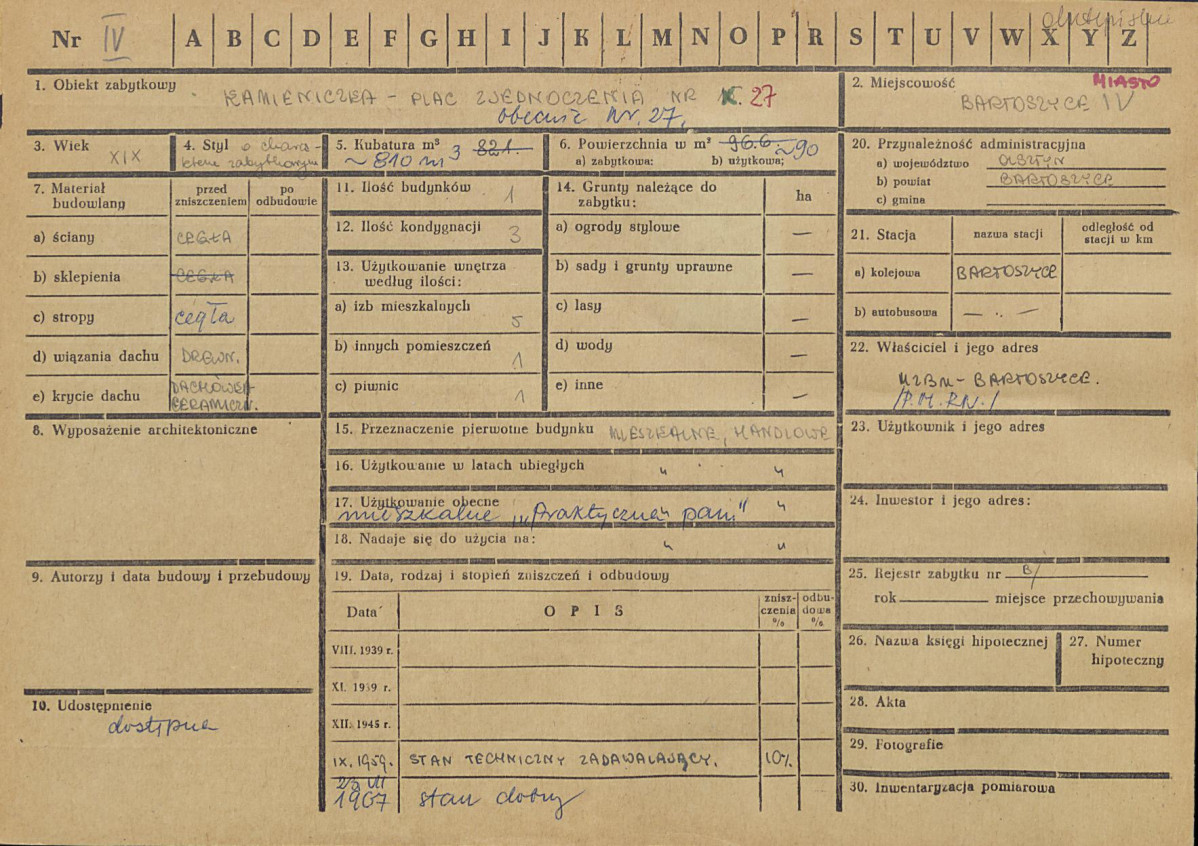 Nr IV A B C D E F G H I J K L M N O P R S T U V W X Y Z
1. Obiekt zabytkowy
KAMIENICZKA - PLAC ZJEDNOCZENIA NR 27
obecnie Nr. 27.
2. Miejscowość MIASTO
BARTOSZYCE IV
3. Wiek
XIX
4. Styl o charakterze zabytkowym
5. Kubatura m³ 821.
~ 810 m³
6. Powierzchnia w m² 96.6 ~90
a) zabytkowa: b) użytkowa;
7. Materiał budowlany
przed zniszczeniem
po odbudowie
a) ściany CEGŁA
b) sklepienia CEGŁA
c) stropy cegła
d) wiązania dachu DREWN.
e) krycie dachu DACHÓWKA CERAMICZN.
8. Wyposażenie architektoniczne
9. Autorzy i data budowy i przebudowy
10. Udostępnienie
dostępna
11. Ilość budynków 1
12. Ilość kondygnacji 3
13. Użytkowanie wnętrza
według ilości:
a) izb mieszkalnych 5
b) innych pomieszczeń 1
c) piwnic 1
14. Grunty należące do
zabytku:
ha
a) ogrody stylowe —
b) sady i grunty uprawne —
c) lasy —
d) wody —
e) inne —
15. Przeznaczenie pierwotne budynku MIESZKALNE, HANDLOWE
16. Użytkowanie w latach ubiegłych " "
17. Użytkowanie obecne
mieszkalne „Praktyczna pani" "
18. Nadaje się do użycia na: " "
19. Data, rodzaj i stopień zniszczeń i odbudowy
Data OPIS znisz-czenia % odbu-dowa %
VIII. 1939 r.
XI. 1939 r.
XII. 1945 r.
IX. 1959. STAN TECHNICZNY ZADAWALAJĄCY. 10%
23 VI
1967 stan dobry
20. Przynależność administracyjna
a) województwo OLSZTYN
b) powiat BARTOSZYCE
c) gmina
21. Stacja
nazwa stacji
odległość od stacji w km
a) kolejowa BARTOSZYCE
b) autobusowa — " —
22. Właściciel i jego adres
MZBM - BARTOSZYCE.
/P.M.RN./
23. Użytkownik i jego adres
24. Inwestor i jego adres:
25. Rejestr zabytku nr B/
rok miejsce przechowywania
26. Nazwa księgi hipotecznej
27. Numer
hipoteczny
28. Akta
29. Fotografie
30. Inwentaryzacja pomiarowa